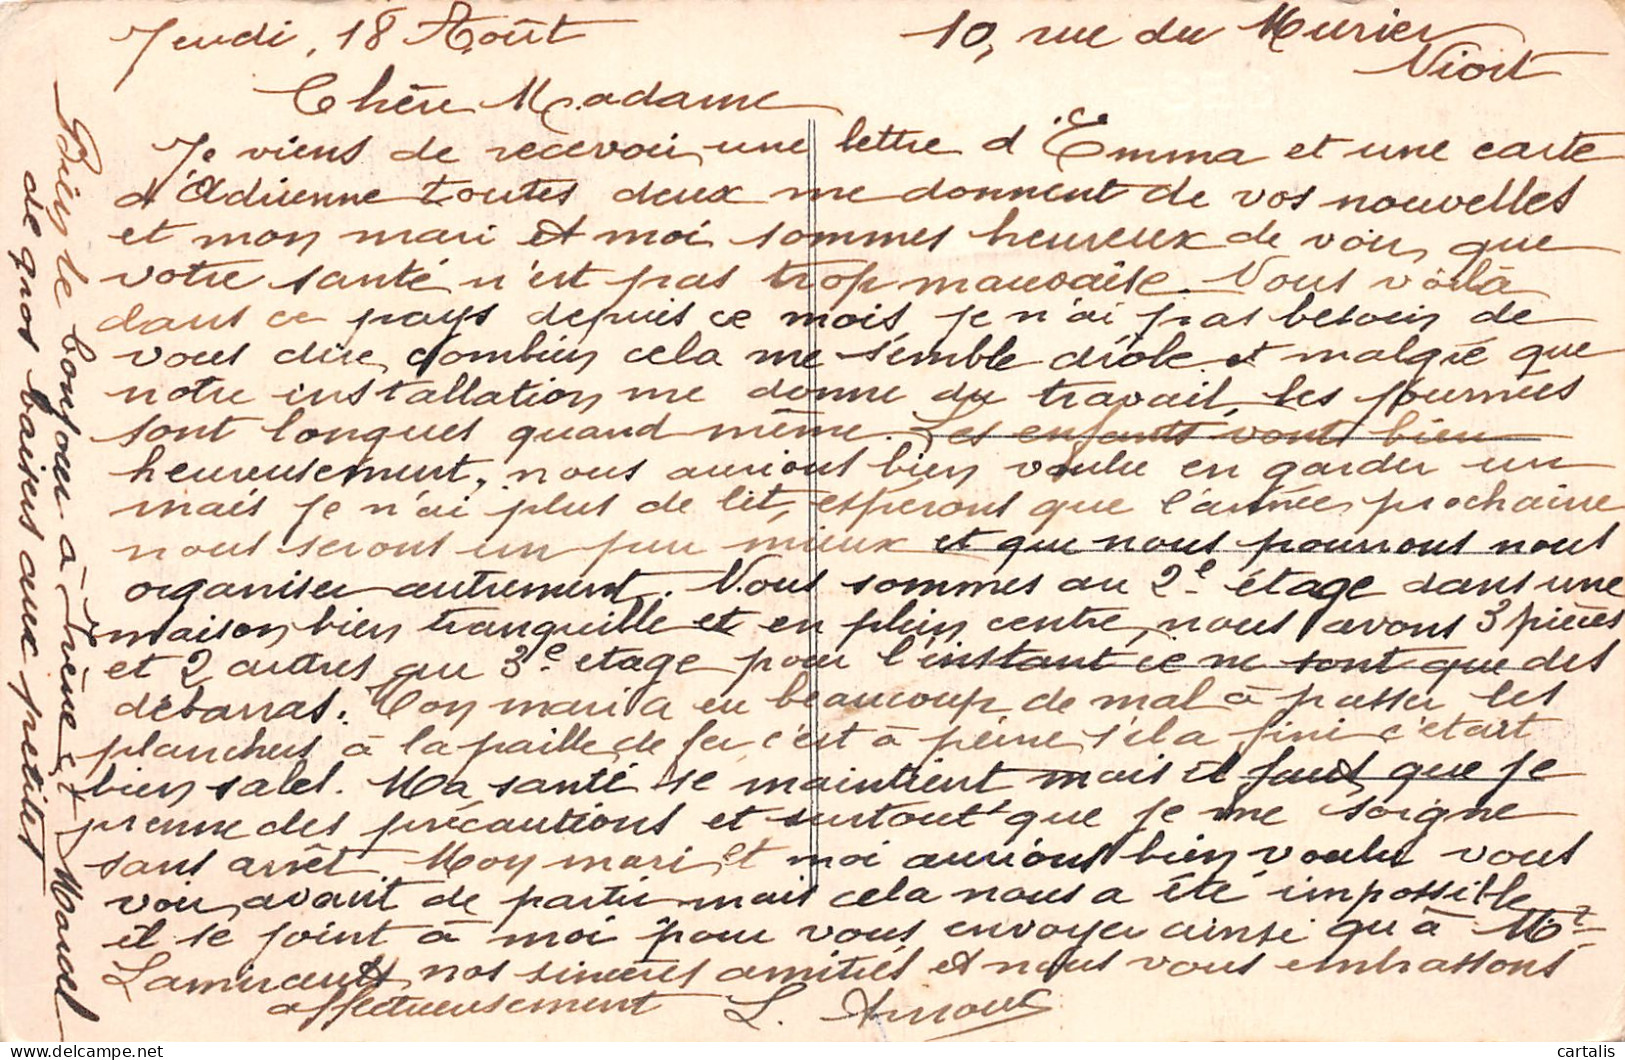 Jeudi, 18 Août
10, rue du Murier
Niort
Chère Madame
Je viens de recevoir une lettre d'Emma et une carte
d'Adrienne toutes deux me donnent de vos nouvelles
et mon mari et moi sommes heureux de voir que
votre santé n'est pas trop mauvaise. Nous voilà
dans ce pays depuis ce mois, je n'ai pas besoin de
vous dire combien cela me semble drôle et malgré que
notre installation me donne du travail, les journées
sont longues quand même. Les enfants vont bien
heureusement, nous aurions bien voulu en garder un
mais je n'ai plus de lit, espérons que l'année prochaine
nous serons un peu mieux et que nous pourrons nous
organiser autrement. Nous sommes au 2e étage dans une
maison bien tranquille et en plein centre, nous avons 3 pièces
et 2 autres au 3e étage pour l'instant ce ne sont que des
débarras. Mon mari a eu beaucoup de mal à passer les
planches à la paille de fer c'est à peine s'il a fini c'était
bien sales. Ma santé se maintient mais il faut que je
prenne des précautions et surtout que je me soigne
sans arrêt. Mon mari et moi aurions bien voulu vous
voir avant de partir mais cela nous a été impossible
il se joint à moi pour vous envoyer ainsi qu'à Mr
nos sincères amitiés et nous vous embrassons
affectueusement L. Arnout
Bien le bonjour à Irène et Marcel
de gros baisers aux petites
cartalis